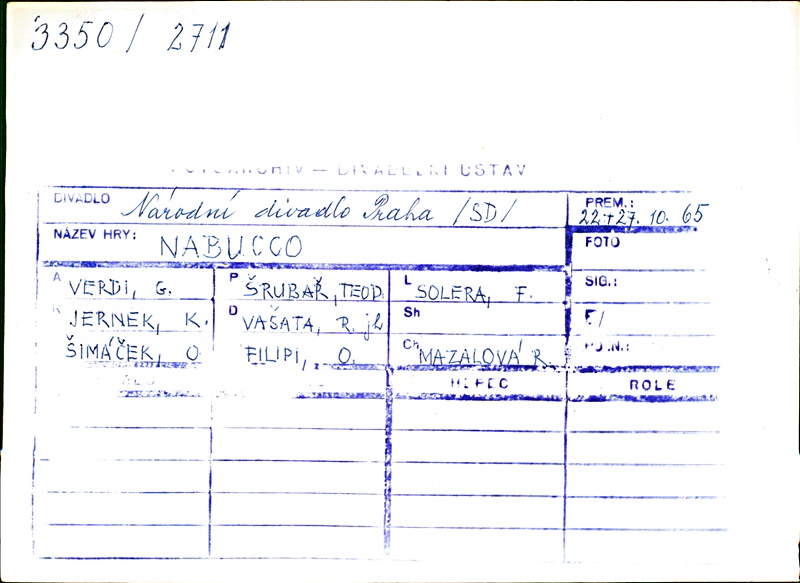 3350/ 2711
FOTOARCHIV — DIVADELNÍ ÚSTAV
DIVADLO Národní divadlo Praha /SD/ PREM.: 22.+27. 10. 65
NÁZEV HRY: NABUCCO FOTO
A VERDI, G. P ŠRUBAŘ, TEOD. L SOLERA, F. SIG.:
JERNEK, K. D VAŠATA, R. jh Sh F/
ŠIMÁČEK, O. FILIPI, O. Ch MAZALOVÁ R.
HEREC ROLE